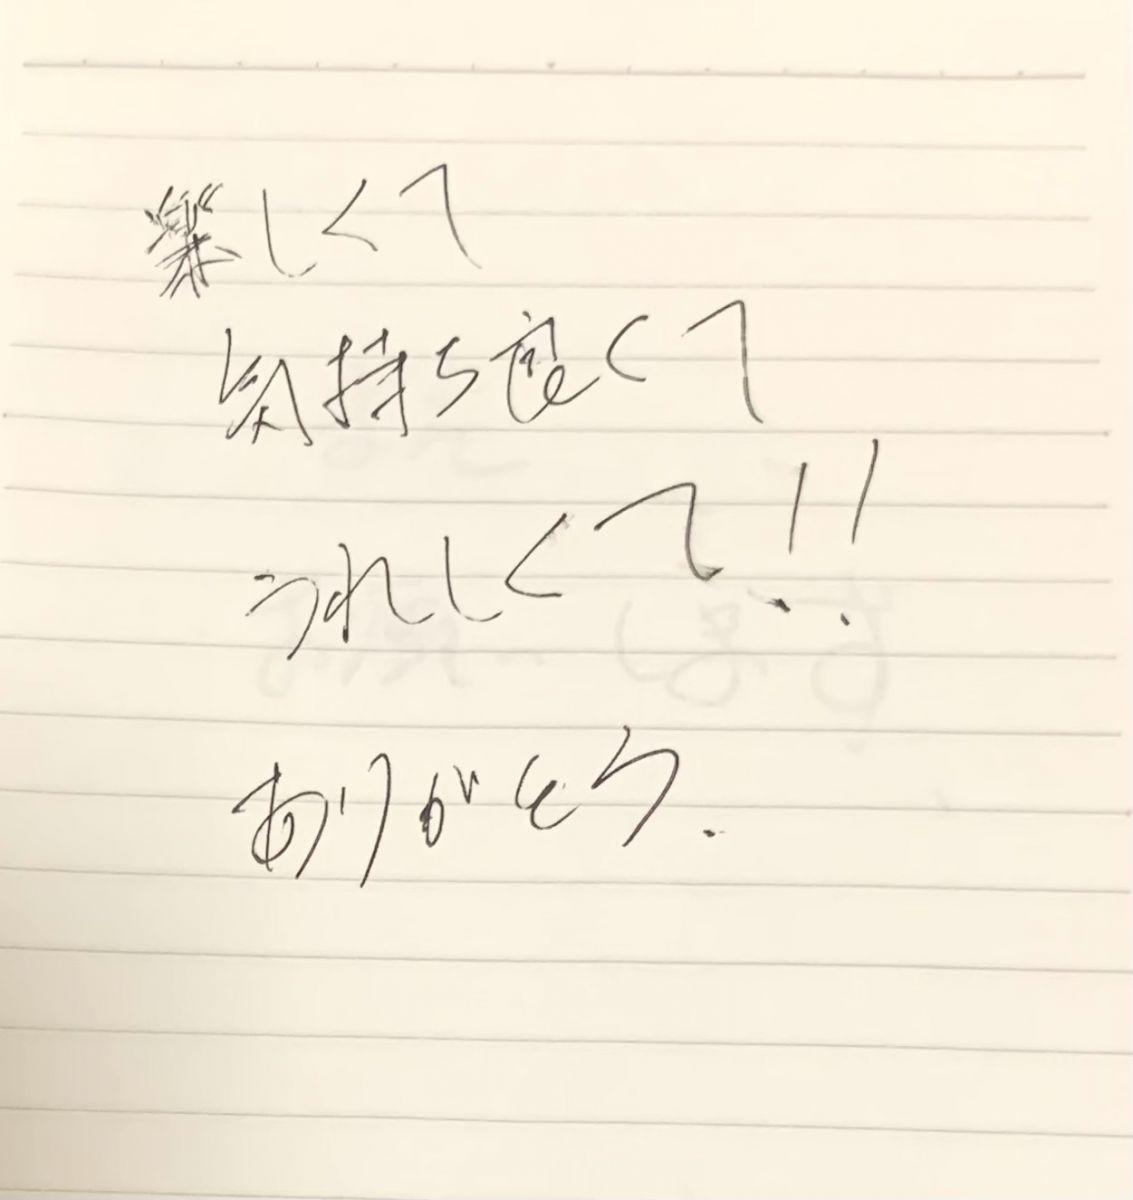 楽しくて
気持ち良くて
うれしくて!!
ありがとう.